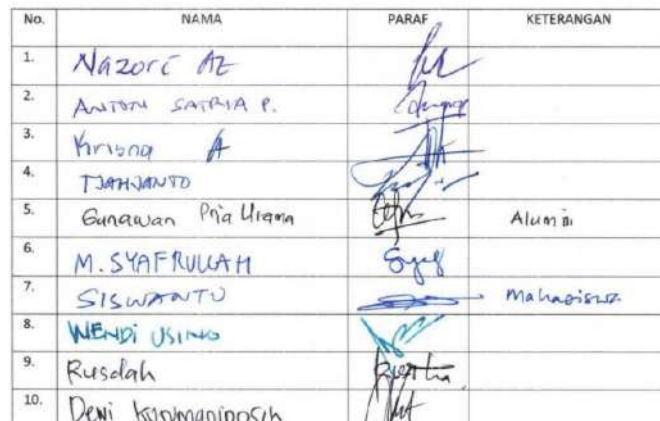 No. NAMA PARAF KETERANGAN
1. Nazori AZ
2. ANTON SATRIA P.
3. Krisna A
4. TJAHJANTO
5. Gunawan Pria Utama Alumni
6. M. SYAFRULLAH
7. SISWANTO Mahasiswa
8. WENDI USINO
9. Rusdah
10. Dewi